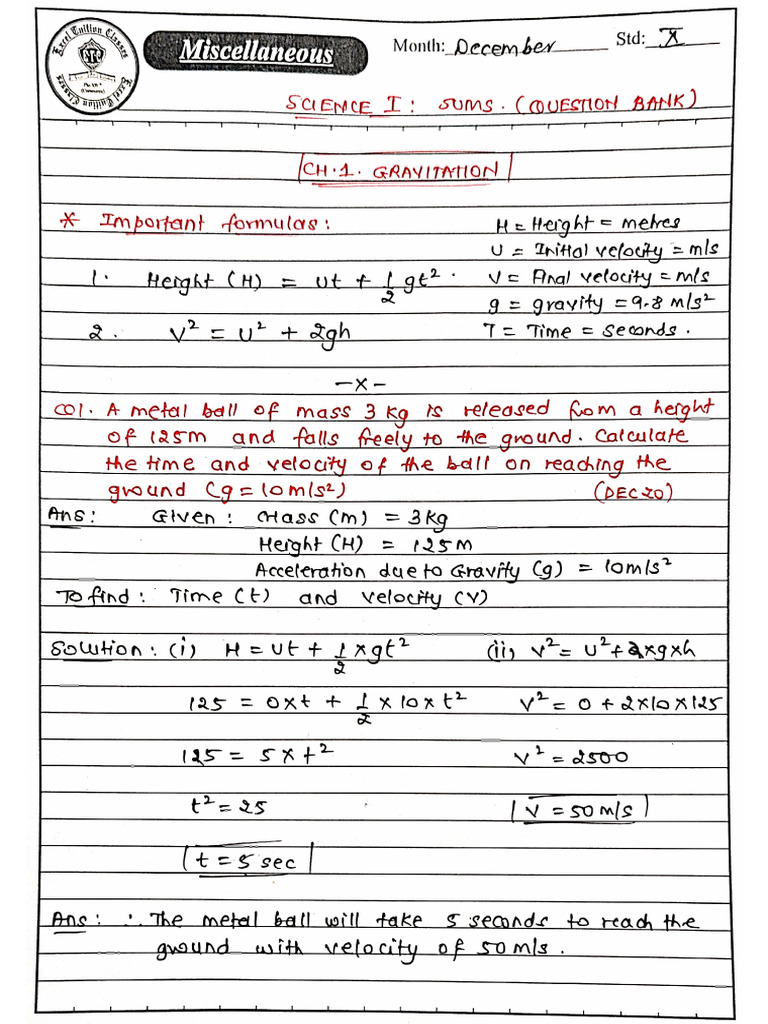 Excel Tuition Classes
ETC
Miscellaneous
Month: December Std: X
SCIENCE I : SUMS. (QUESTION BANK)
CH.1. GRAVITATION
* Important formulas:
H = Height = metres
U = Initial velocity = m/s
1. Height (H) = Ut + 1/2 gt².
V = Final velocity = m/s
g = gravity = 9.8 m/s²
2. V² = U² + 2gh
T = Time = Seconds.
-x-
Q1. A metal ball of mass 3 kg is released from a height
of 125m and falls freely to the ground. Calculate
the time and velocity of the ball on reaching the
ground (g = 10m/s²) (DEC 20)
Ans: Given: Mass (m) = 3kg
Height (H) = 125m
Acceleration due to Gravity (g) = 10m/s²
To find: Time (t) and velocity (V)
Solution: (i) H = Ut + 1/2 x gt² (ii) V² = U² + 2xgxh
125 = 0xt + 1/2 x 10 x t² V² = 0 + 2x10x125
125 = 5 x t² V² = 2500
t² = 25 V = 50m/s
t = 5 sec
Ans: ∴ The metal ball will take 5 seconds to reach the
ground with velocity of 50 m/s.